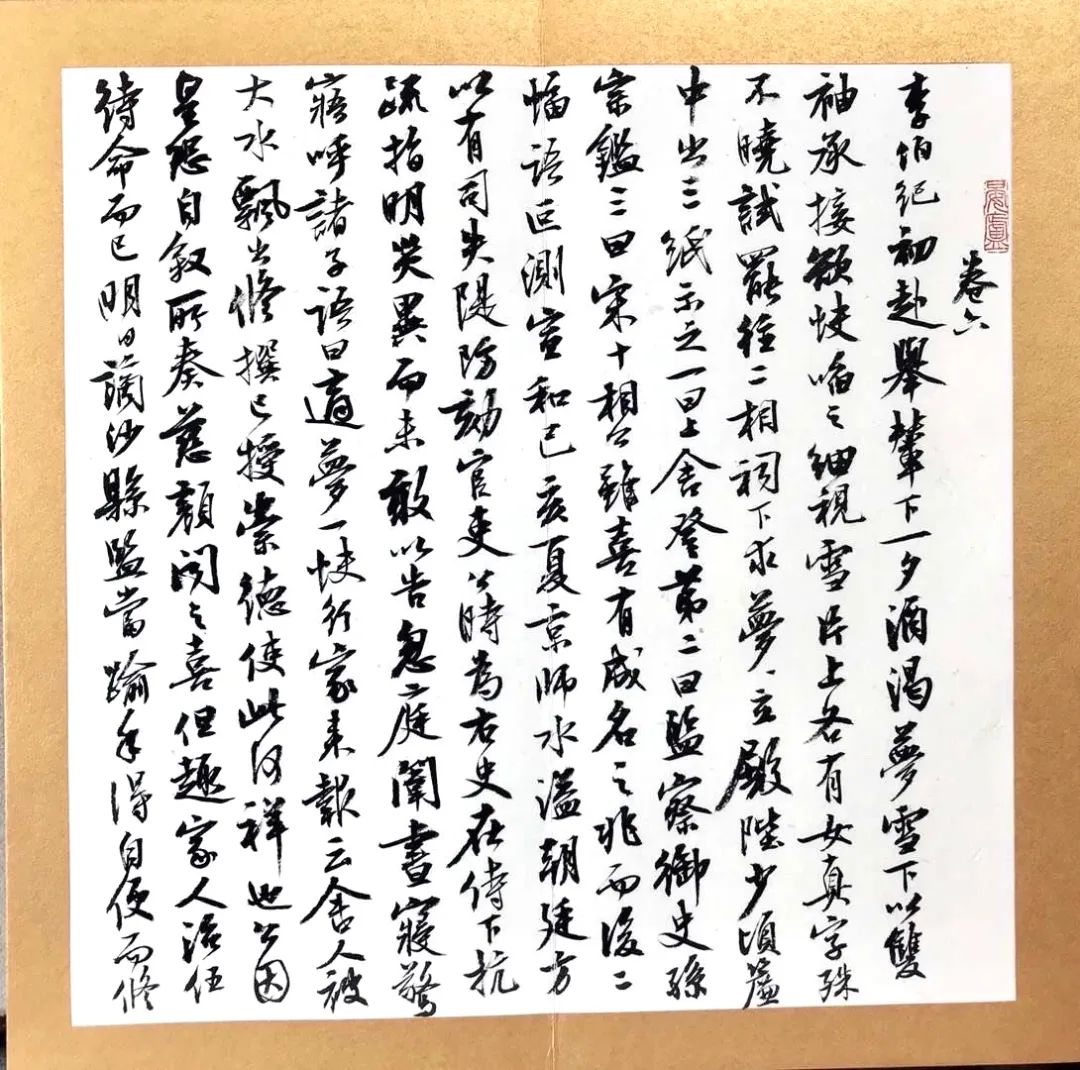 卷六
李伯纪初赴舉輦下一夕酒渴夢雪下以雙
袖承接欲快啗之細視雪片上各有女真字殊
不曉試罷往二相祠下求夢夢立殿陛少頃簾
中出三紙示之一曰上舍登第二曰監察御史孫
宗鑑三曰宋十相公雖喜有成名之兆而後二
幅語叵測宣和己亥夏京师水溢朝廷方
以有司失隄防劾官吏公時為右史在侍下抗
疏指明災異而未敢以告忽庭闈晝寢驚
寤呼諸子語曰適夢一快行家来報云舍人被
大水飄出修撰已授崇德使此何祥也公因
皇恐自叙所奏慈顏聞之喜但趣家人治任
待命而已明日謫沙縣監當踰年得自便而修